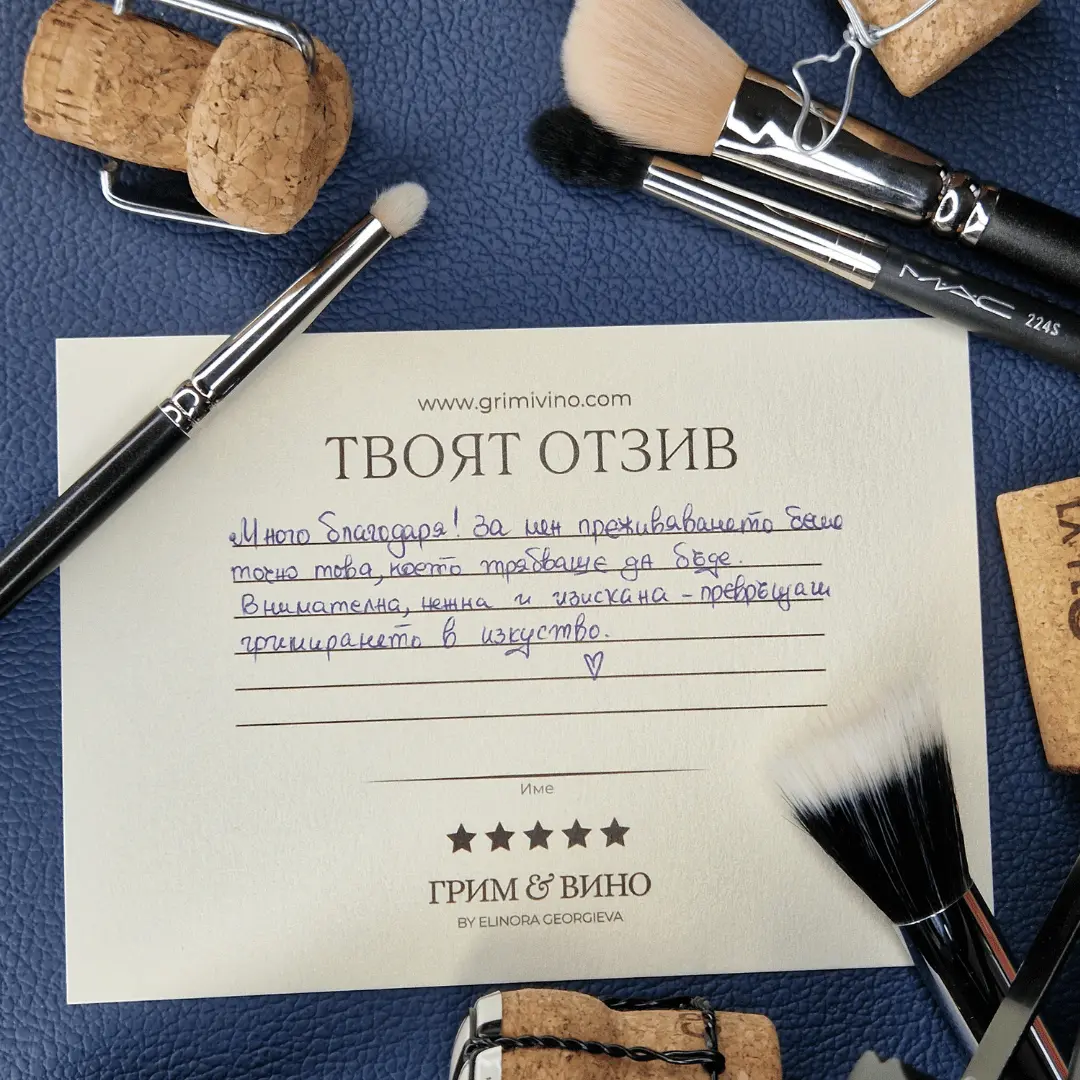 MAC
224S
www.grimivino.com
ТВОЯТ ОТЗИВ
Много благодаря! За мен преживяването беше
точно това, което трябваше да бъде.
Внимателна, нежна и изискана - превръщаш
гримирането в изкуство.
Име
ГРИМ & ВИНО
BY ELINORA GEORGIEVA